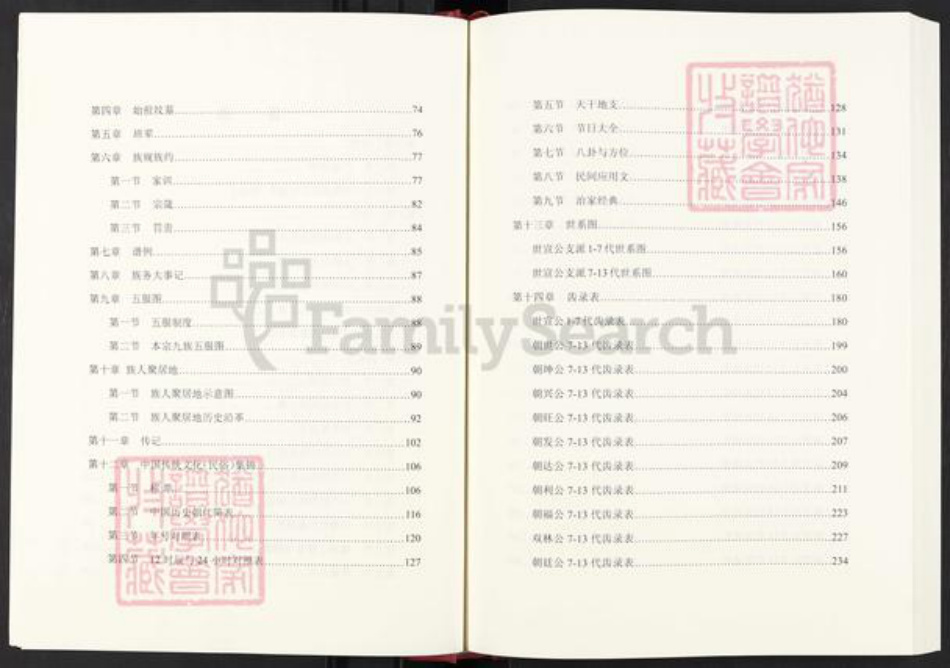 第四章 始祖坟墓 74
第五章 班辈 76
第六章 族规族约 77
第一节 家训 77
第二节 宗箴 82
第三节 罚责 84
第七章 谱例 85
第八章 族务大事记 87
第九章 五服图 88
第一节 五服制度 88
第二节 本宗九族五服图 89
第十章 族人聚居地 90
第一节 族人聚居地示意图 90
第二节 族人聚居地历史沿革 92
第十一章 传记 102
第十二章 中国传统文化(民俗)集锦 106
第一节 106
第二节 中国历史朝代简表 116
第三节 年号对照表 120
第四节 12时辰与24小时对照表 127
第五节 天干地支 128
第六节 节日大全 131
第七节 八卦与方位 134
第八节 民间应用文 138
第九节 治家经典 146
第十三章 世系图 156
世宣公支派 1-7 代世系图 156
世宣公支派 7-13 代世系图 160
第十四章 齿录表 180
世宣公 1-7 代齿录表 180
朝世公 7-13 代齿录表 199
朝坤公 7-13 代齿录表 200
朝兴公 7-13 代齿录表 204
朝旺公 7-13 代齿录表 206
朝发公 7-13 代齿录表 207
朝达公 7-13 代齿录表 209
朝利公 7-13 代齿录表 211
朝福公 7-13 代齿录表 223
双林公 7-13 代齿录表 227
朝廷公 7-13 代齿录表 234
FamilySearch